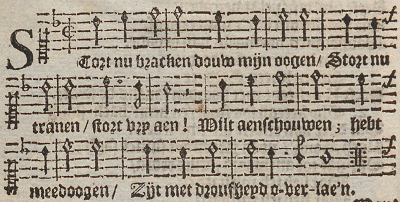 STort nu bracken douw mijn oogen / Stort nu
tranen / stort vry aen! Wilt aenschouwen, hebt
meedoogen / Zijt met droufheyd o-ver-lae'n.